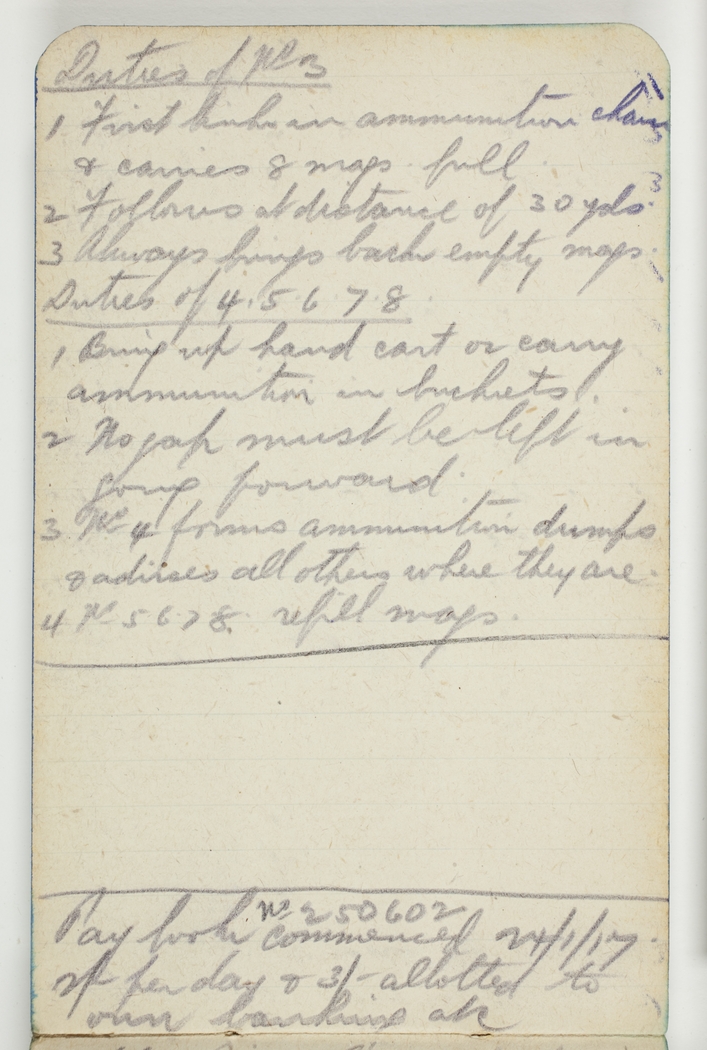 Duties of No 3
1 First link in ammunition chain
& carries 8 mags. full.
2 Follows at distance of 30 yds.
3 Always brings back empty mags.
Duties of 4.5.6.7.8.
1 Bring up hand cart or carry
ammunition in buckets.
2 No gap must be left in
going forward.
3 No 4 forms ammunition dumps
& advises all others where they are.
4 No 5 6 7 8. refill mags.
Pay book No 250602 commenced 24/1/17.
per day & 3/- allotted to
own banking a/c